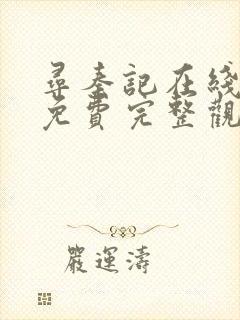 尋秦記在綫
免費完整觀
嚴運濤